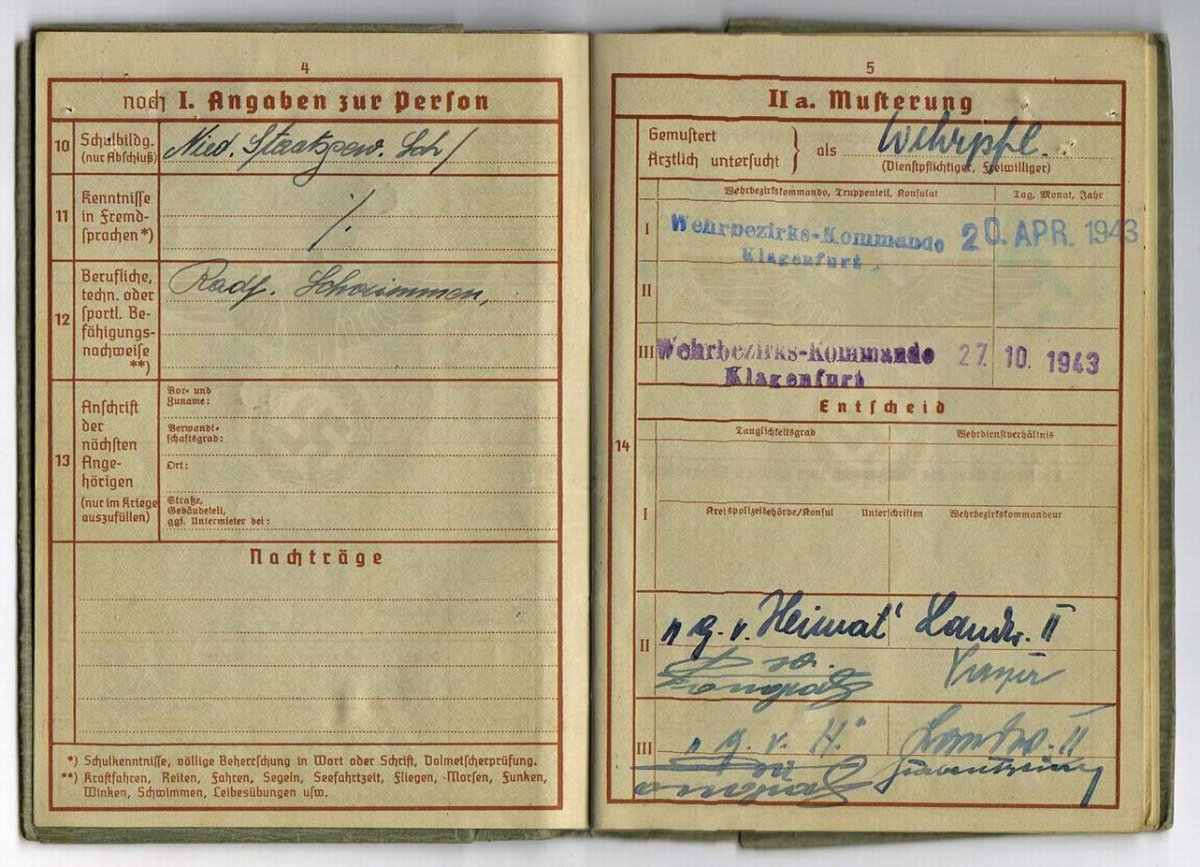 4
noch I. Angaben zur Person
10 Schulbildg. (nur Abschluß)
Nied. Staatsgew. Sch/
11 Kenntnisse in Fremd-
sprachen*)
/.
12 Berufliche,
techn. oder
sportl. Be-
fähigungs-
nachweise
**)
Radf. Schwimmen,
13 Anschrift
der
nächsten
Ange-
hörigen
(nur im Kriege
auszufüllen)
Vor- und
Zuname:
Verwandt-
schaftsgrad:
Ort:
Straße,
Gebäudeteil,
ggf. Untermieter bei:
Nachträge
*) Schulkenntnisse, völlige Beherrschung in Wort oder Schrift, Dolmetscherprüfung.
**) Kraftfahren, Reiten, Fahren, Segeln, Seefahrtzeit, Fliegen, Morsen, Funken,
Winken, Schwimmen, Leibesübungen usw.
5
II a. Musterung
Gemustert
Ärztlich untersucht } als Wehrpfl.
(Dienstpflichtiger, Freiwilliger)
Wehrbezirkskommando, Truppenteil, Konsulat Tag, Monat, Jahr
I Wehrbezirks-Kommando 20. APR. 1943
Klagenfurt
II
III Wehrbezirks-Kommando 27. 10. 1943
Klagenfurt
Entscheid
14
Tauglichkeitsgrad Wehrdienstverhältnis
I Kreispolizeibehörde/Konsul Unterschriften Wehrbezirkskommandeur
II "g. v. Heimat" Landw. II
III "g. v. H." Landw. II